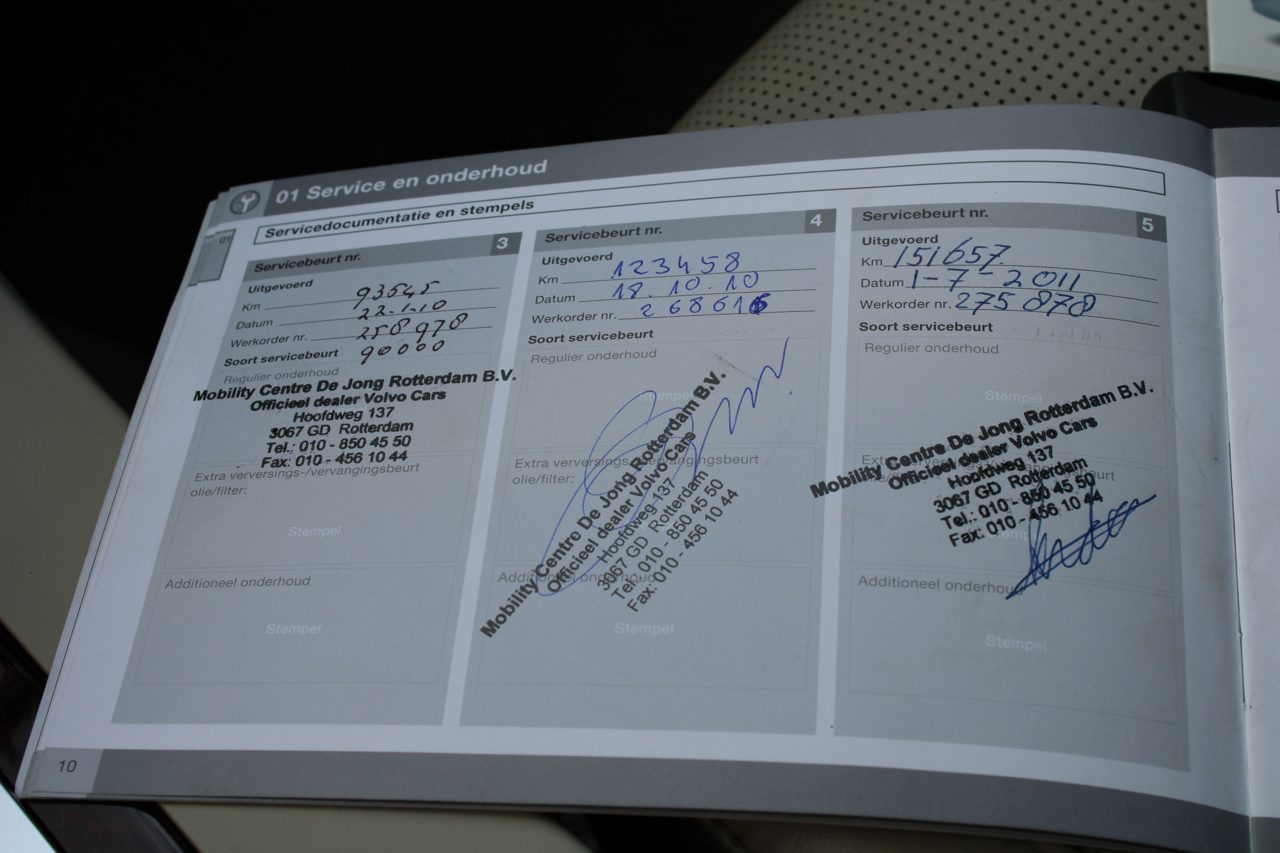 01 Service en onderhoud
Servicedocumentatie en stempels
01
Servicebeurt nr. 3
Uitgevoerd
Km 93545
Datum 22.1.10
Werkorder nr. 258978
Soort servicebeurt 90000
Regulier onderhoud
Mobility Centre De Jong Rotterdam B.V.
Officieel dealer Volvo Cars
Hoofdweg 137
3067 GD Rotterdam
Tel.: 010 - 850 45 50
Fax: 010 - 456 10 44
Extra verversings-/vervangingsbeurt
olie/filter:
Stempel
Additioneel onderhoud
Stempel
Servicebeurt nr. 4
Uitgevoerd
Km 123458
Datum 18.10.10
Werkorder nr. 268616
Soort servicebeurt
Regulier onderhoud
Stempel
Mobility Centre De Jong Rotterdam B.V.
Officieel dealer Volvo Cars
Hoofdweg 137
3067 GD Rotterdam
Tel.: 010 - 850 45 50
Fax: 010 - 456 10 44
Extra verversings-/vervangingsbeurt
olie/filter:
Additioneel onderhoud
Stempel
Servicebeurt nr. 5
Uitgevoerd
Km 151657
Datum 1-7-2011
Werkorder nr. 275878
Soort servicebeurt
Regulier onderhoud
Stempel
Mobility Centre De Jong Rotterdam B.V.
Officieel dealer Volvo Cars
Hoofdweg 137
3067 GD Rotterdam
Tel.: 010 - 850 45 50
Fax: 010 - 456 10 44
Additioneel onderhoud
Stempel
10